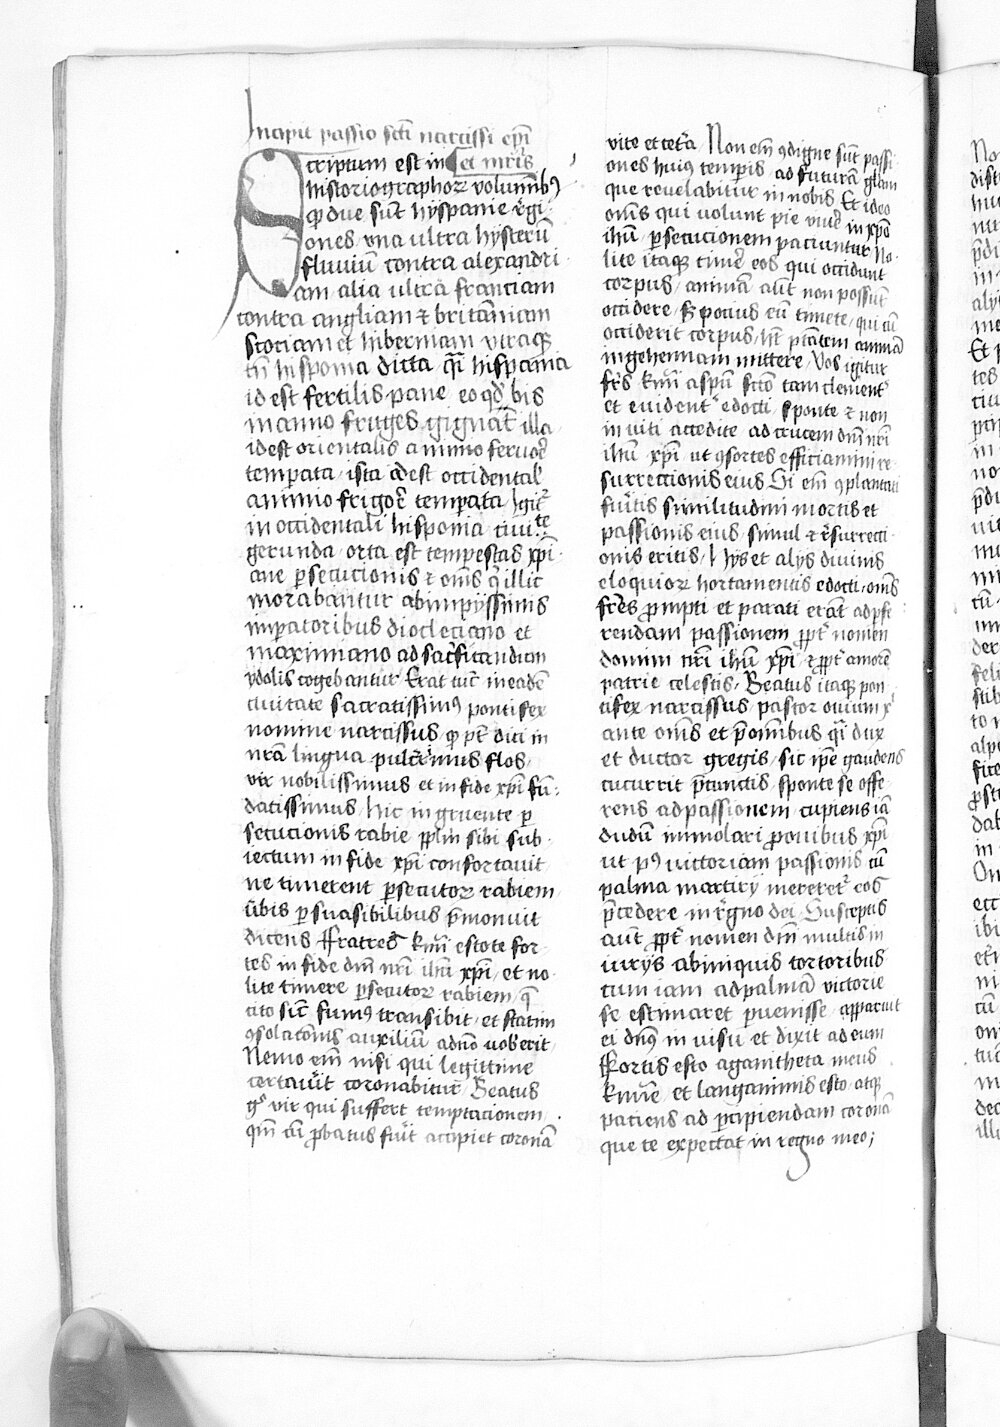 Incipit passio scti narcissi epi
Scriptum est in et mris
historiographoꝝ voluminibꝰ
qd due sut hyspanie regi
ones, vna ultra hysteru
fluviu contra alexandri
am, alia ultra franciam
contra angliam et britanicam
scociam et hiberniam utraqꝫ
tn hispania dicta qsi hispania
id est fertilis pane, eo qd bis
in anno fruges gignat, illa
id est orientalis a nimio feruore
temperata, ista idest occidental
a nimio frigore temperata, Igitr
in occidentali hispania ciuite
gerunda, orta est tempestas xpi
ane persecucionis et omis q illic
morabantur ab impijssimis
imperatoribus diocleciano et
maximiano ad sacrificandum
ydolis cogebantur Erat tuc in eade
ciuitate sacratissimꝰ pontifex
nomine narcissus, q pt dici in
nra lingua pulcrrimus flos,
vir nobilissimus et in fide xpi fu
datissimus, hic ingruente per
secucionis rabie pplm sibi sub
iectum in fide xpi confortauit
ne timerent persecutoꝝ rabiem
vbis persuasibilibus pmonuit
dicens ffratres kmi estote for
tes in fide dni nri ihu xpi, et no
lite timere persecutoꝝ rabiem, q
cito sict fumꝰ transibit, et statim
ꝯsolacionis auxiliu a dno vob erit
Nemo em nisi qui legittime
certauit coronabitur, Beatus
gͦ vir qui suffert temptacionem,
qm cu pbatus fuit accipiet corona
vite et cetera, Non em ꝯdigne sut passi
ones huiꝰ temporis, ad futura glam
que reuelabitur in nobis Et ideo
omis qui volunt pie viuere in xpo
ihu, persecucionem paciuntur, No
lite itaqꝫ timere eos qui occidunt
corpus, animam aut non possut
occidere, sꝫ pocius eu timete, qui cu
occiderit corpus, ht ptatem animam
in gehennam mittere, Vos igitur
frs kmi a spu scto tam clementer
et euidenter edocti, sponte et non
inuiti accedite ad crucem dni nri
ihu xpi ut ꝯsortes efficiamini re
surrectionis eius Si em ꝯplantati
fuitis similitudini mortis et
passionis eius, simul et resurrecti
onis eritis, hijs et alijs diuinis
eloquioꝝ hortamentis edocti, omis
frēs prompti et parati erant ad perfe
rendam passionem ppter nomen
domini nri ihu xpi, et ppter amore
patrie celestis, Beatus itaqꝫ pon
tifex narcissus pastor ouium x
ante omis et pre omnibus qsi dux
et ductor gregis, sic ipe gaudens
cucurrit pre cunctis, sponte se offe
rens ad passionem, cupiens ia
dudu immolari pro ouibus xpi
ut pꝰ victoriam passionis cu
palma martirij mereretr eos
precedere in regno dei, Susceptis
aut ppter nomen dni multis in
iurijs ab iniquis tortoribus
cum iam ad palmam victorie
se estimaret peruenisse, apparuit
ei dnꝰ in uisu et dixit ad eum
ffortis esto aganitheta meus
kme, et langanimis esto, atqꝫ
paciens ad percipiendam corona
que te expectat in regno meo;